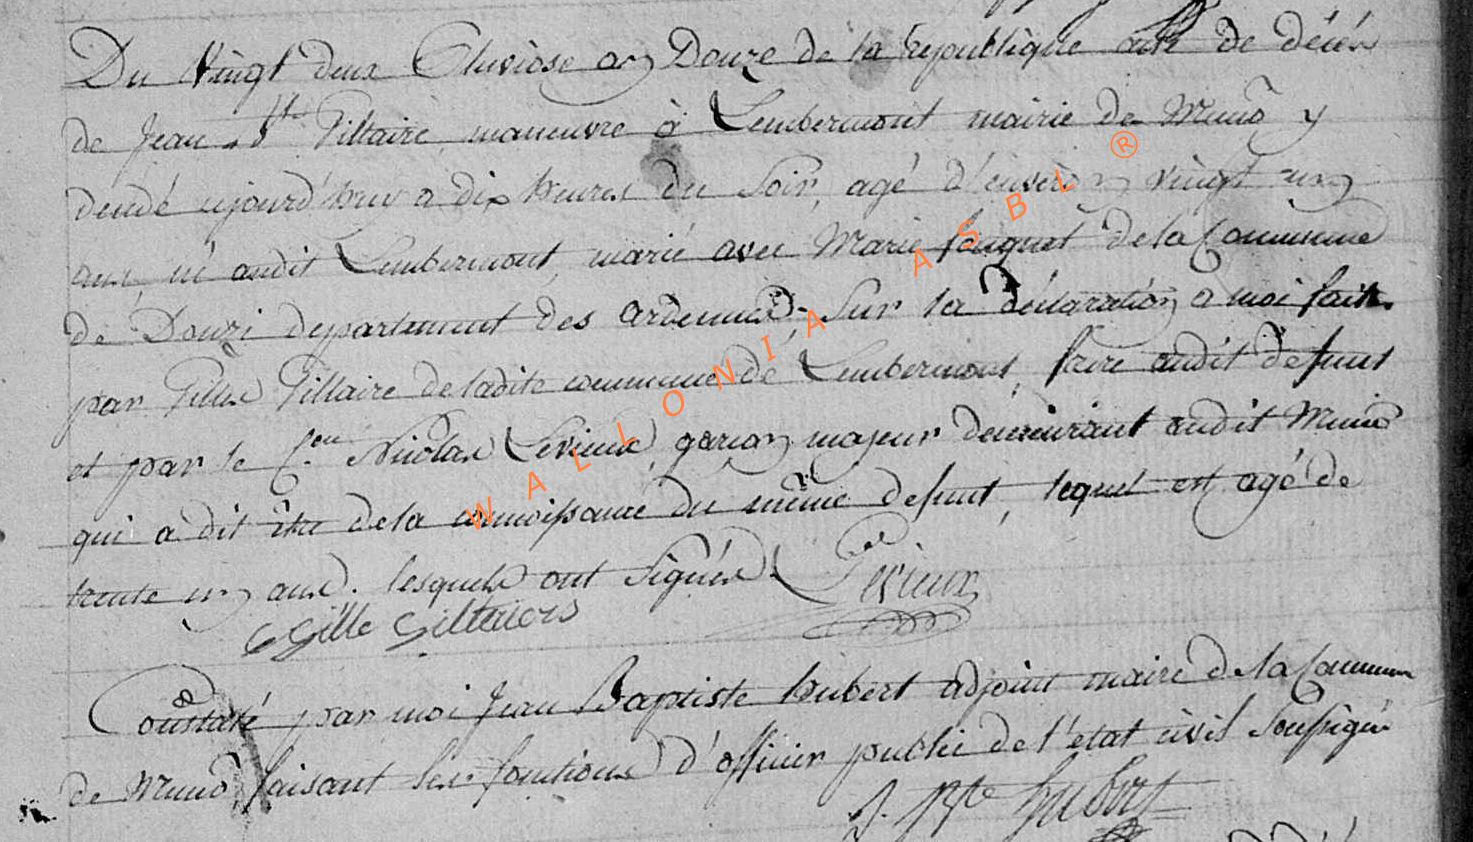 Du vingt deux Pluviose an Douze de la republique acte de décés
de Jean Bte Giltaire, manœuvre à Lambermont mairie de Muno y
décédé ajourd'huy a dix heures du soir, agé d'environ vingt un
ans, né audit Lambermont, marié avec Marie de la Commune
de Douzi departement des ardennes, Sur la déclaration a moi faite
par Gille Giltaire de ladite commune de Lambermont, frere audit defunt
et par le Cen Nicolas Levieux, garçon majeur demeurant audit Muno
qui a dit être de la connoissance du même defunt, lequel est agé de
trente un ans. lesquels ont signés. Levieux
Gille Gilteiers
Constaté par moi Jean Baptiste hubert adjoint maire de la Commune
de Muno faisant les fonctions d'officier public de l'état civil soussigné
J. Bte hubert
WALLONIA ASBL ®